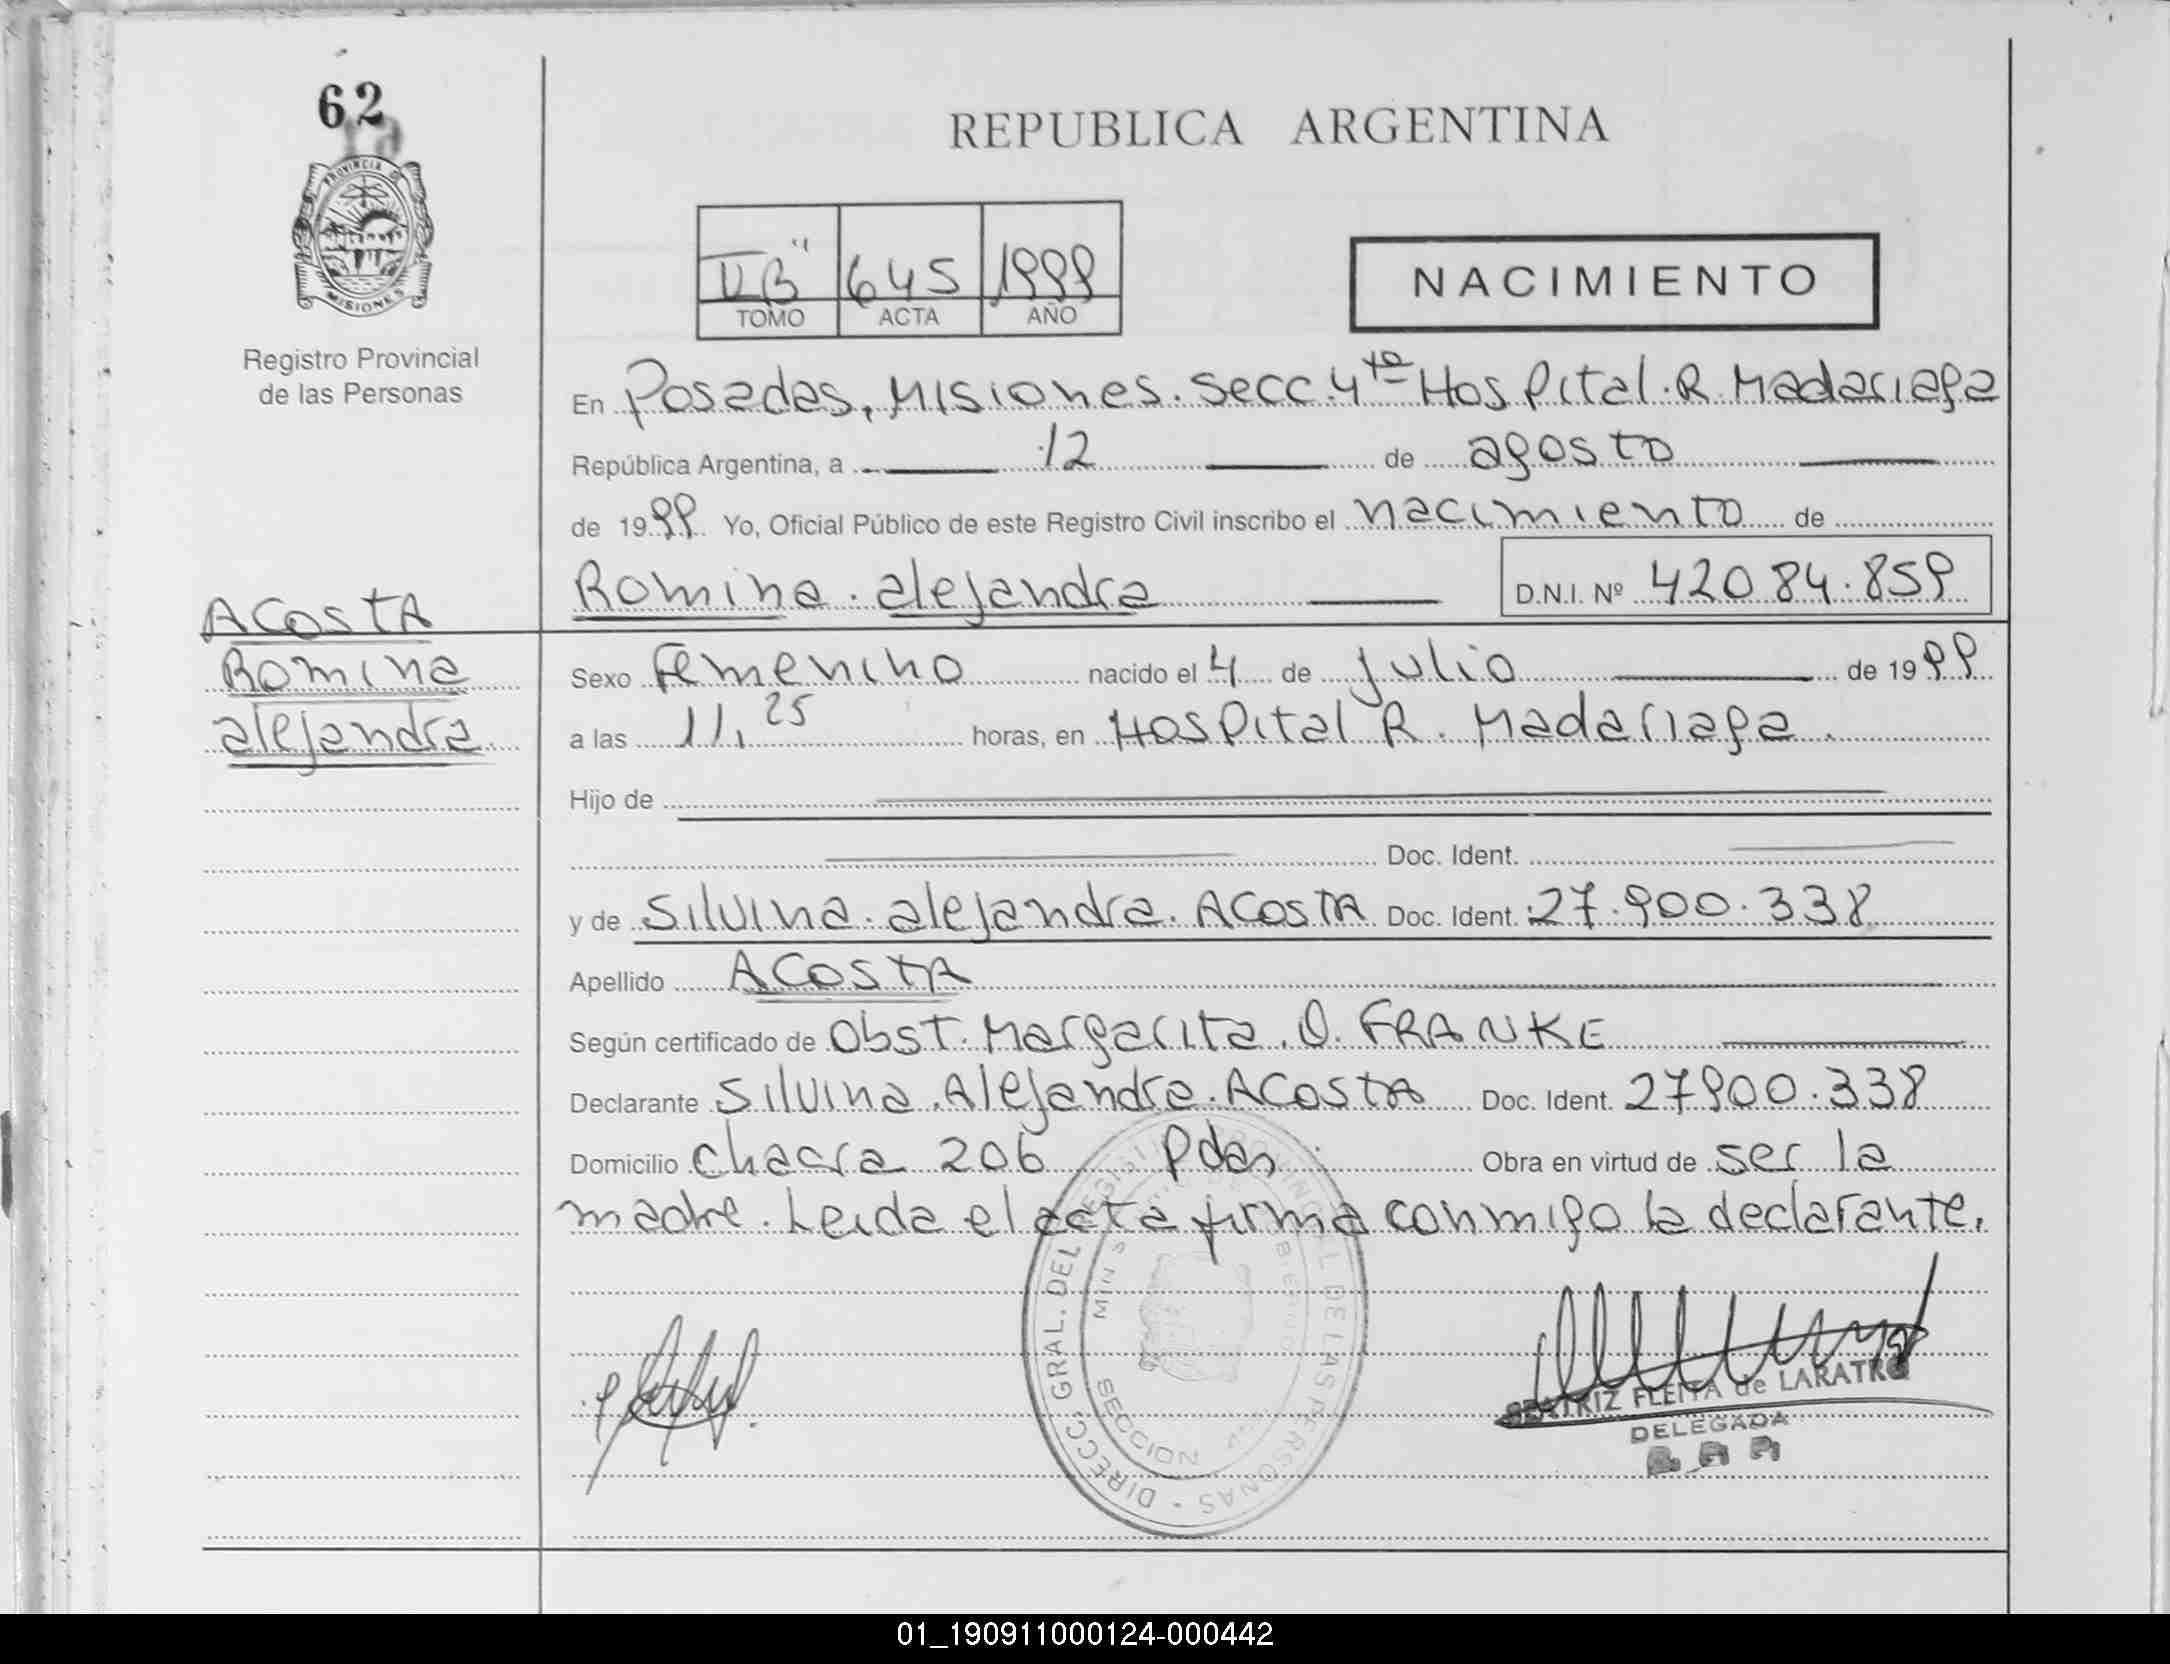 62
PROVINCIA DE
MISIONES
Registro Provincial
de las Personas
REPUBLICA ARGENTINA
645 1999
TOMO ACTA AÑO
NACIMIENTO
En Posadas, Misiones. Secc. 4ta Hospital. R. Madariaga
República Argentina, a 12 de agosto
de 1999 Yo, Oficial Público de este Registro Civil inscribo el nacimiento de
Romina. alejandra D.N.I. Nº 42084.859
ACOSTA
Romina
alejandra.
Sexo Femenino nacido el 4 de julio de 1999
a las 11,25 horas, en Hospital R. Madariaga.
Hijo de
Doc. Ident.
y de Silvina. alejandra. ACOSTA Doc. Ident. 27.900.338
Apellido ACOSTA
Según certificado de Obst. Margarita. O. FRANKE
Declarante Silvina. Alejandra. ACOSTA Doc. Ident. 27900.338
Domicilio Chacra 206 Pdas Obra en virtud de ser la
madre. Leida el acta firma conmigo la declarante.
DIRECC. GRAL. DEL REGISTRO PROVINCIAL DE LAS PERSONAS
SECCION
BEATRIZ FLEITA de LARATRO
DELEGADA
01_190911000124-000442